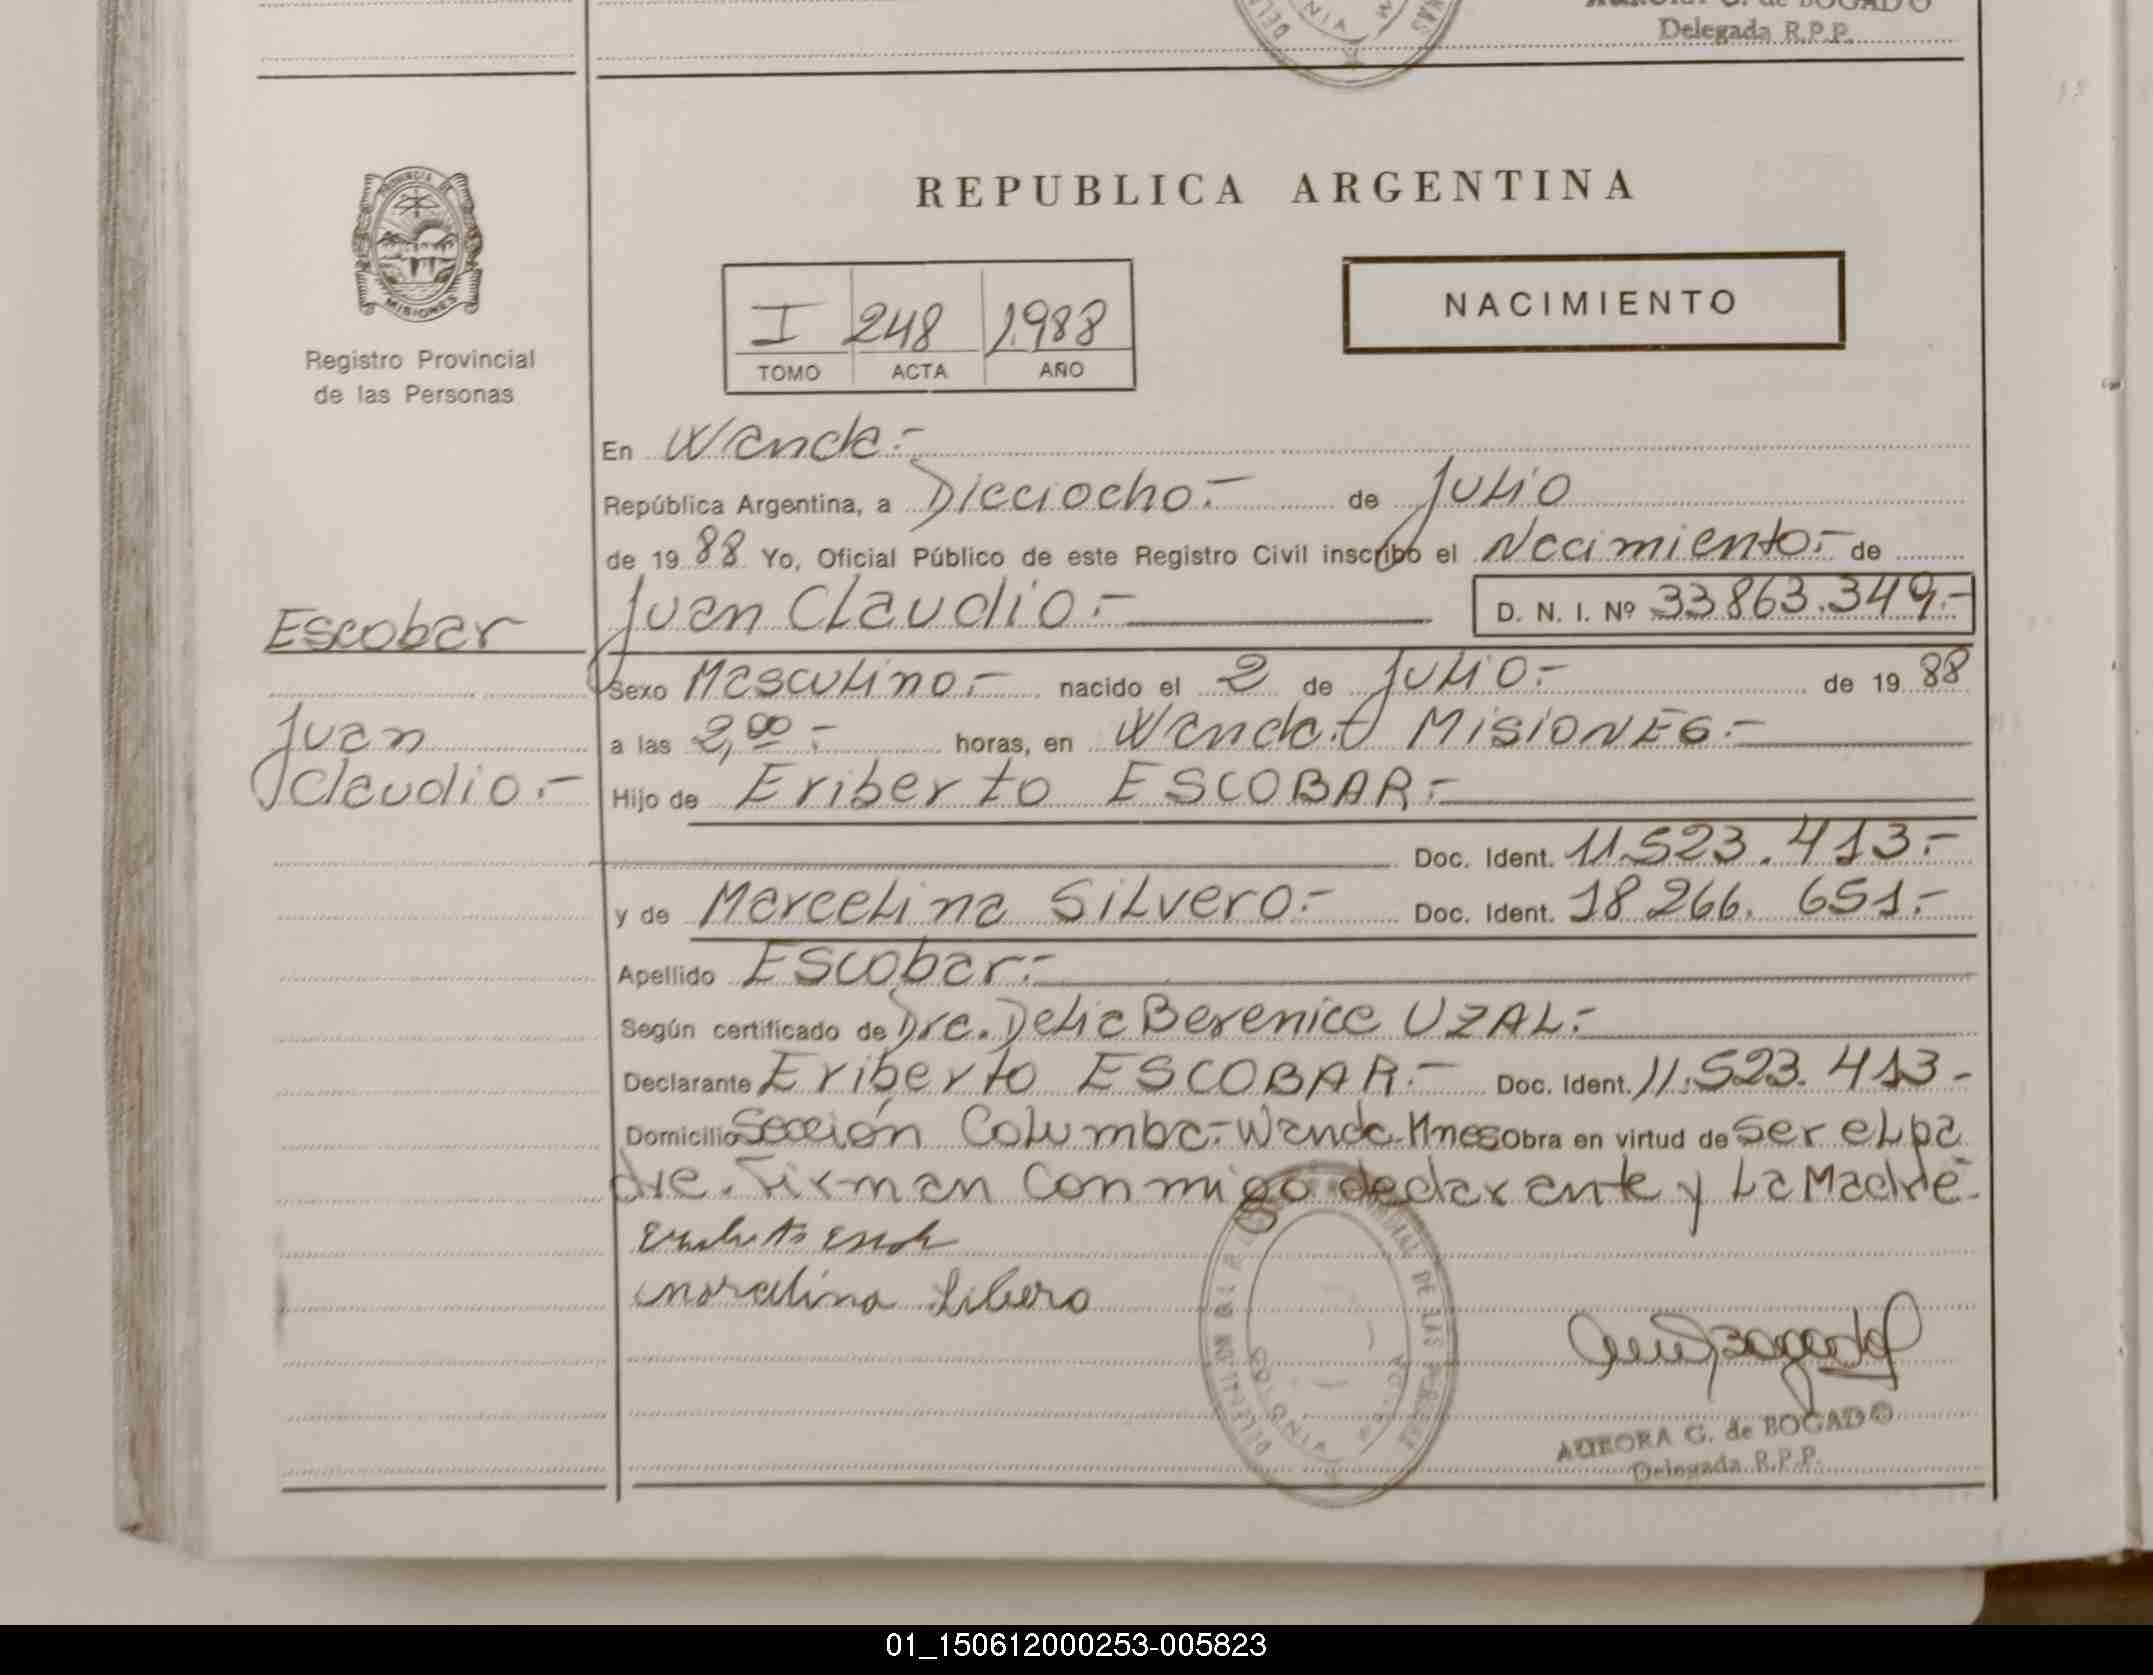 Delegada R.P.P.
PROVINCIA DE
MISIONES
Registro Provincial
de las Personas
REPUBLICA ARGENTINA
I 248 1988
TOMO ACTA AÑO
NACIMIENTO
En Wanda.-
República Argentina, a Dieciocho.- de Julio
de 19 88 Yo, Oficial Público de este Registro Civil inscribo el Nacimiento.- de
Escobar
Juan Claudio.-
Juan Claudio.- D. N. I. Nº 33.863.349.-
Sexo Masculino.- nacido el 2 de Julio.- de 19 88
a las 2,00.- horas, en Wanda. MISIONES.-
Hijo de Eriberto ESCOBAR.-
Doc. Ident. 11.523.413.-
y de Marcelina Silvero.- Doc. Ident. 18.266.651.-
Apellido Escobar.-
Según certificado de Dra. Delia Berenice UZAL.-
Declarante Eriberto ESCOBAR.- Doc. Ident. 11.523.413-
Domicilio Sección Columba.- Wanda. Mnes obra en virtud de ser el pa
dre. Firman conmigo declarante y La Madre-
COLONIA WANDA
AURORA G. de BOGADO
Delegada R.P.P.
01_150612000253-005823